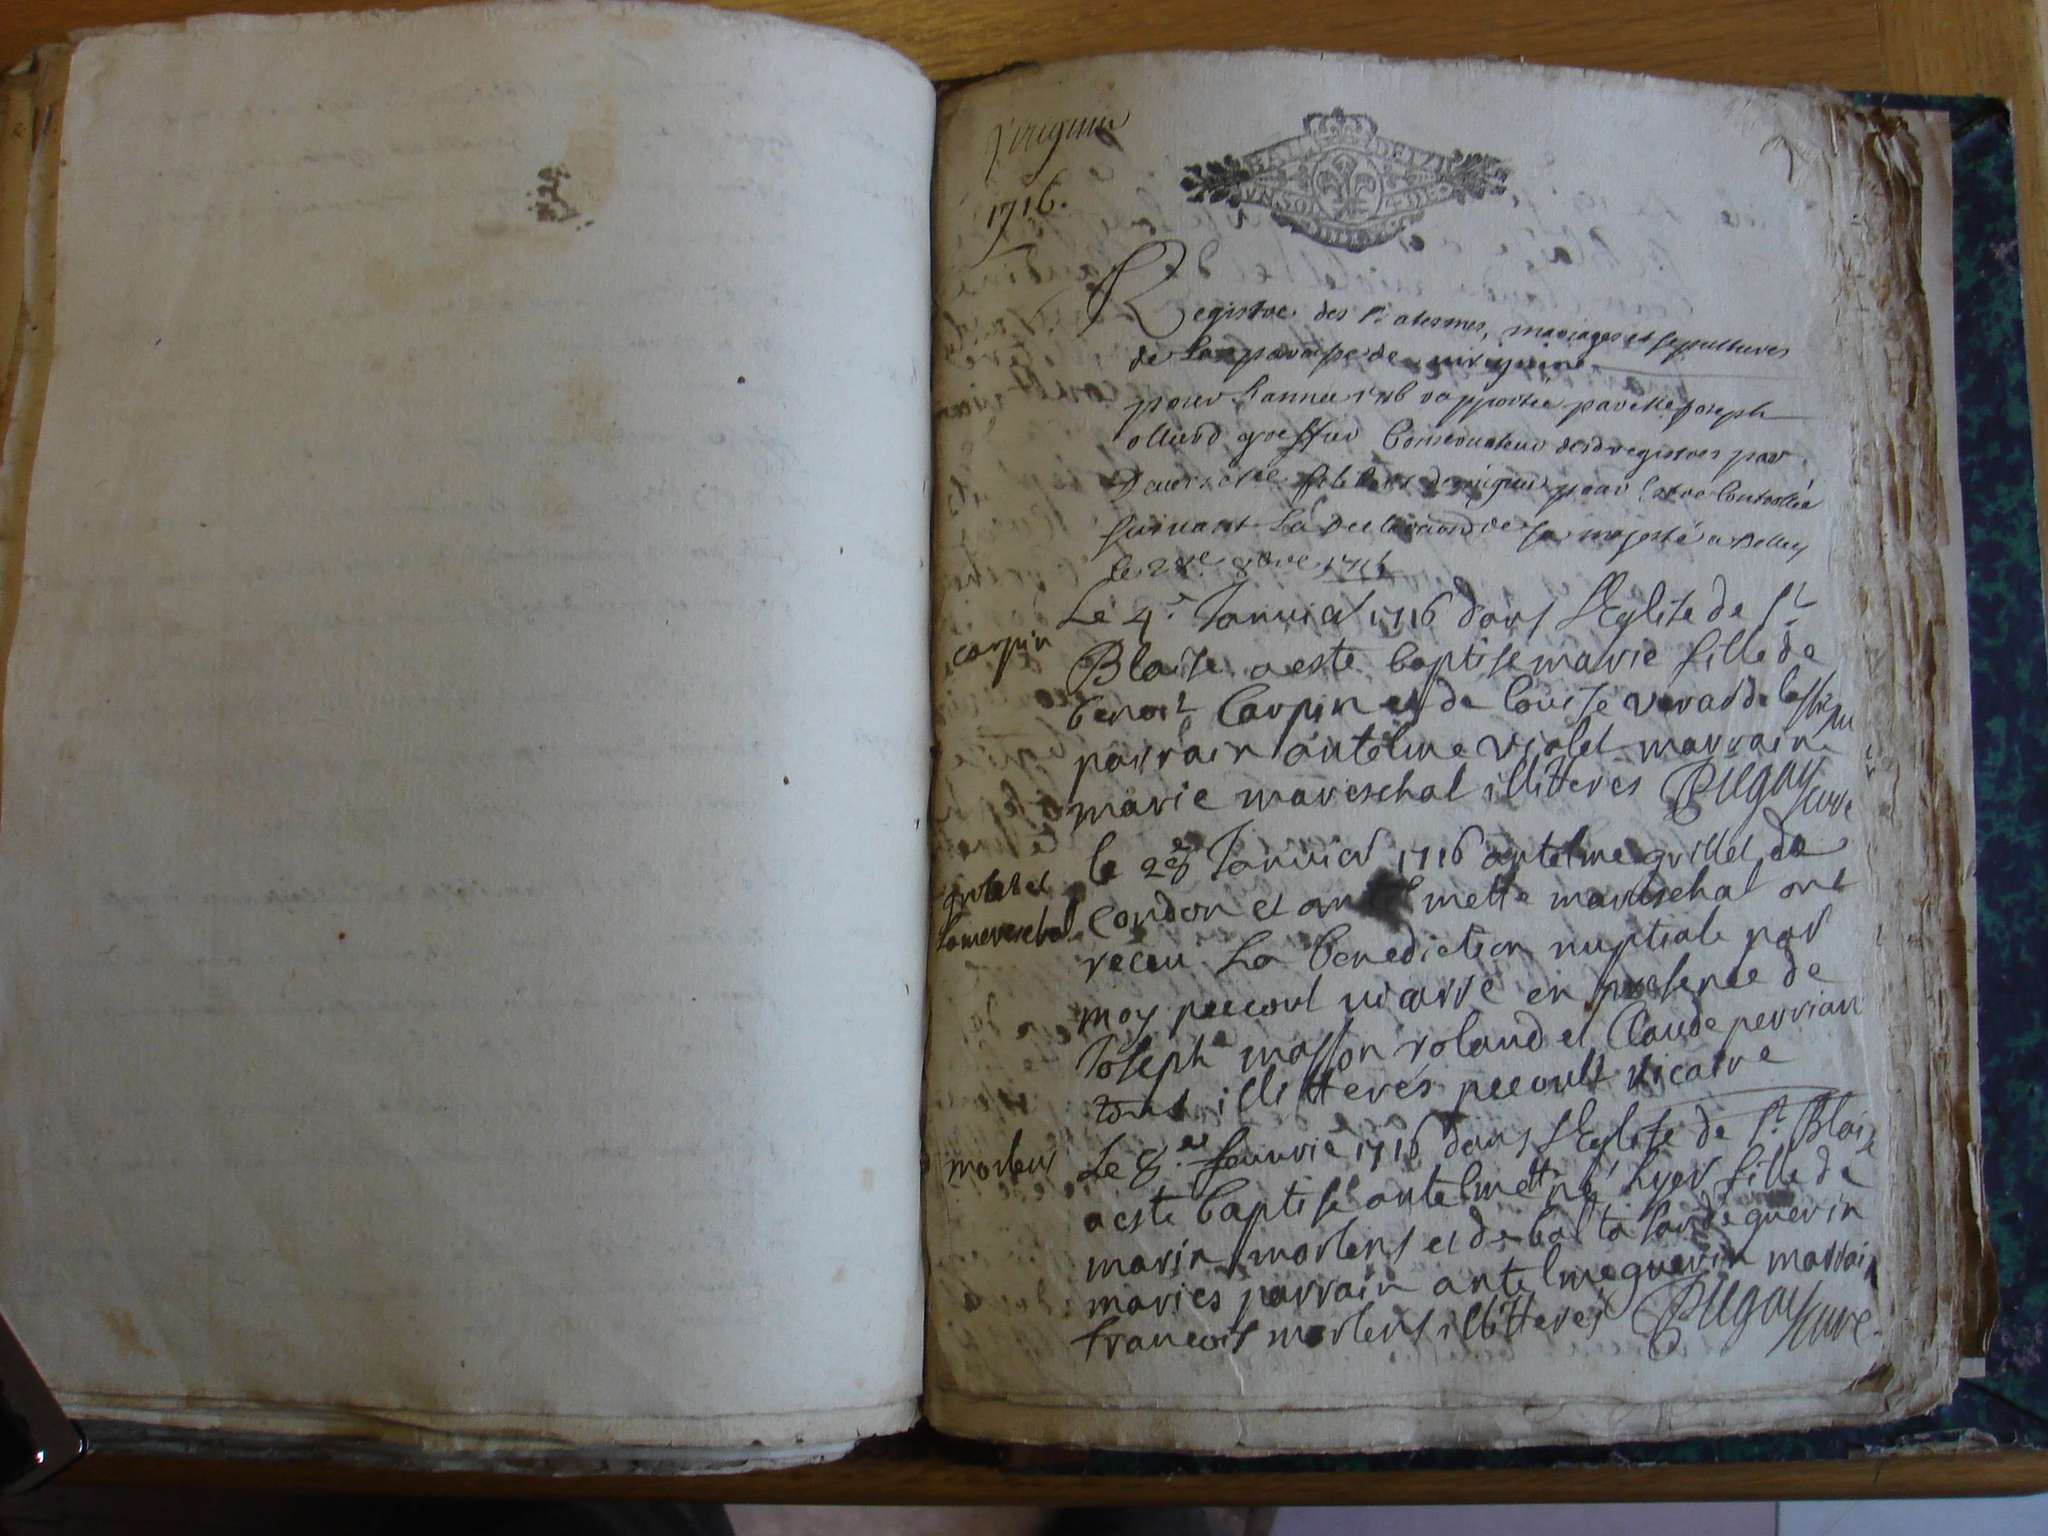 Virignin
1716.
UN SOL
Registre des Batesmes, mariages et sepultures
de La paroisse de virignin
pour Lannée 1716 rapportée par Me Joseph
ollierd greffier Conservateur desd registres par
pour Estre Controllée
suivant La declaration de sa majesté a Belley
le 28e 8bre 1716
carpin
Le 4.e Janvier 1716 dans l'Eglise de St
Blaise a esté baptise marie fille de
benoit Carpin et de louise verard
parrain antelme violet marraine
marie mareschal illitterés Pugay curé
grilet et
la mereschal
le 28e Janvier 1716 antelme grillet de
Cordon et antelmette mareschal ont
receu La benediction nuptiale par
moy pecoul vicaire en presence de
Joseph masson roland et Claude perrian
tous illitterés pecoult vicaire
morlens
Le 8.e feuvrie 1716 dans l'Eglise de St Blaise
a esté baptise antelmette hyer fille de
marin morlens et de baltasarde guerin
maries parrain antelme guerin marrain
francois morlens illitteres Pugay curé